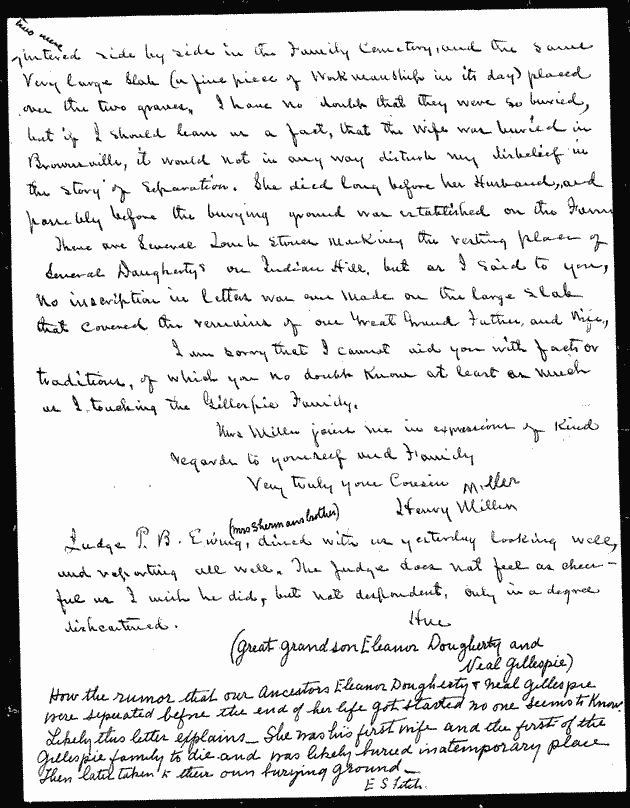 two were
intered side by side in the Family Cemetery, and the same
Very large Slab (a fine piece of Workmanship in its day) placed
over the two graves. I have no doubt that they were so buried,
but if I should learn as a fact, that the Wife was buried in
Brownsville, it would not in any way disturb my disbelief in
the Story of Separation. She died long before her Husband, and
possibly before the burying ground was established on the Farm
There are Several Tomb Stones Marking the resting place of
Several Daughertys on Indian Hill, but as I Said to you,
no inscription in letters was ever Made on the large Slab
that covered the remains of our Great Grand Father, and Wife,
I am sorry that I cannot aid you with facts or
traditions, of which you no doubt Know at least as much
as I touching the Gillespie Family.
Mrs Miller joins me in expressions of Kind
regards to yourself and Family
Very truly your Cousin
Miller
Henry Miller
(Mrs Shermans brother)
Judge P. B. Ewing, dined with us yesterday looking well,
and reporting all well. The Judge does not feel as cheer-
ful as I wish he did, but not despondent, only in a degree
disheartened.
(Great grandson Eleanor Dougherty and
Neal Gillespie)
How the rumor that our Ancestors Eleanor Dougherty & Neal Gillespie
were seperated before the end of her life got started no one seems to Know.
Likely this letter explains_ She was his first wife and the first of the
Gillespie family to die and was likely buried in a temporary place
then later taken to their own burying ground_
E S Fitch.